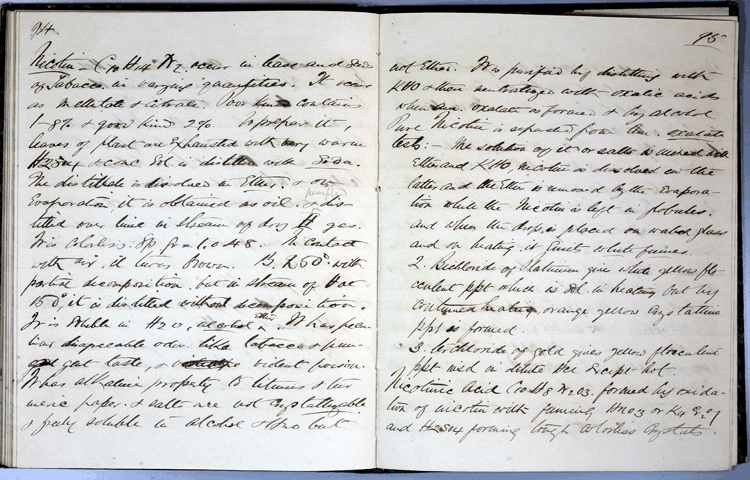 94
Nicotin - C10H14 N2. occur in leave and Seeds
of Tabacco in varying quantities. It occur
as mellitate & citrate. Poor kind contains
1-8% & good kind 2%. To prepare it,
leaves of plant are Exhausted with very warm
H2SO4 & conc Sol is distilled with Soda.
The distillate is dissolved in Ether. & on
Evaporation it is obtained as oil. & dis-
tilled over lime in stream of dry H gas.
It is colorless. Sp gr = 1.048. In contact
with air, it turns Brown. B, 250° with
partial decomposition. but in stream of H at
150° it is distilled without decomposition.
It is soluble in H2O, alcohol & Ether. It has pecu-
liar disagreeable odor like tobacco & pun-
gent taste, & violent poison.
It has alkaline property to litmus & tur
meric paper. & salts are not crystallizable
& freely soluble in alcohol & H2O but
95
not Ether. It is purified by distilling with
KHO & then neutralized with oxalic acids
when oxalate is formed & by alcohol
Pure Nicotin is separated from the oxalate
test: - The solution of it or salts is mixed with
Ether and KHO, nicotin is dissolved in the
latter and the Ether is removed by the Evapora-
tion while the Nicotin is left in globules.
and when the drop is placed on watch glass
and on heating it Emit white fumes.
2. Bichloride of Platinum give white yellow flo-
culent ppt which is sol in heating but by
continued heating, orange yellow crystalline
ppt is formed.
3. terchloride of gold gives yellow flocculent
ppt in dilute HCl Except hot.
Nicotinic Acid C10H8N2O3. formed by oxida-
tion of nicotin with fuming HNO3 or K2Cr2O7
and H2SO4 forming tough colorless crystals.